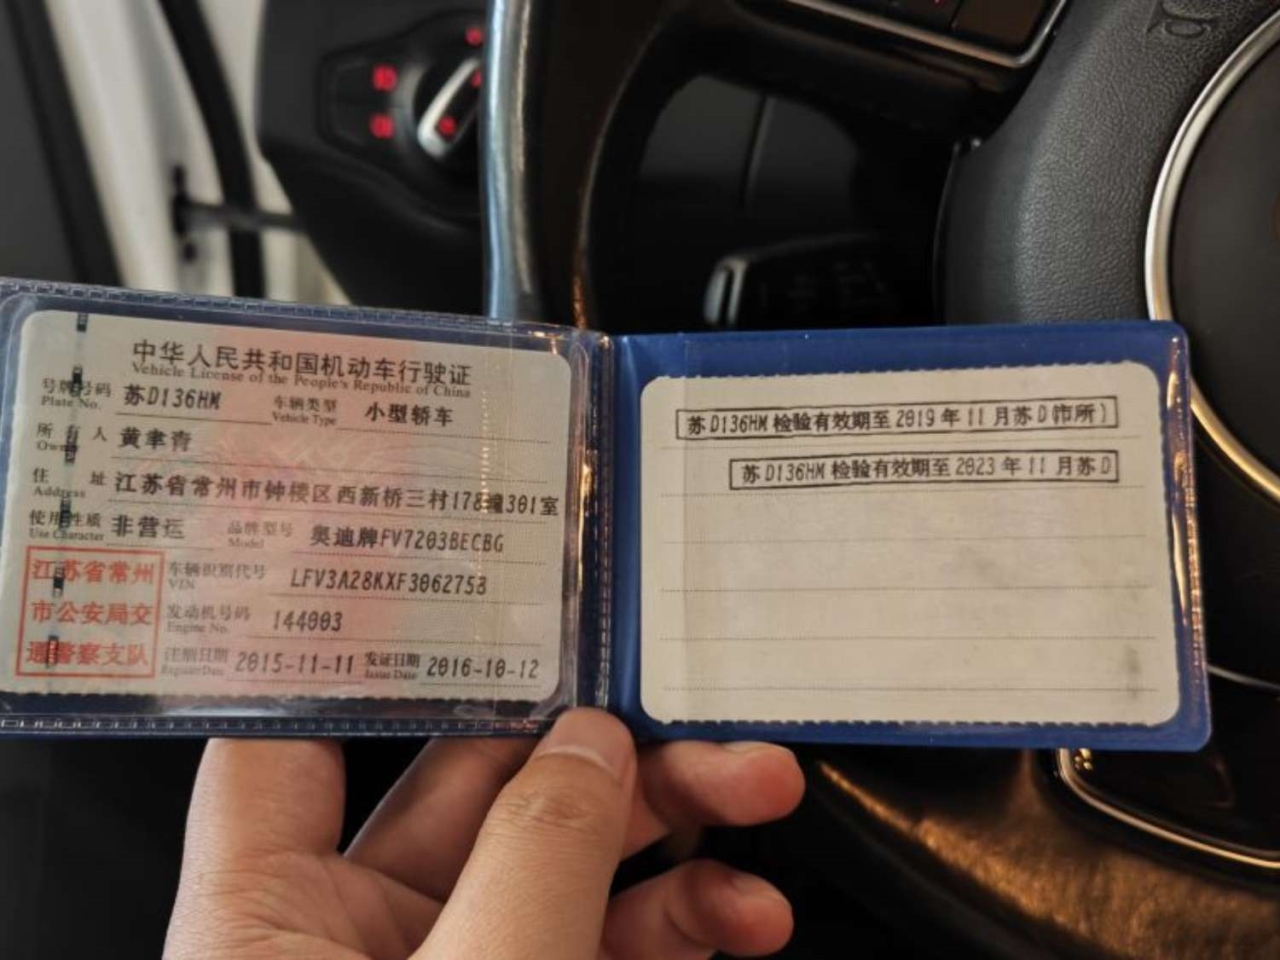 中华人民共和国机动车行驶证
Vehicle License of the People's Republic of China
号牌号码 苏D136HM 车辆类型 小型轿车
Plate No. Vehicle Type
所有人 黄聿青
Owner
住址 江苏省常州市钟楼区西新桥三村178幢301室
Address
使用性质 非营运 品牌型号 奥迪牌FV7203BECBG
Use Character Model
江苏省常州 车辆识别代号 LFV3A28KXF3062758
VIN
市公安局交 发动机号码 144003
Engine No.
通警察支队 注册日期 2015-11-11 发证日期 2016-10-12
Register Date Issue Date
苏D136HM 检验有效期至 2019 年 11 月苏 D (市所)
苏D136HM 检验有效期至 2023 年 11 月苏 D